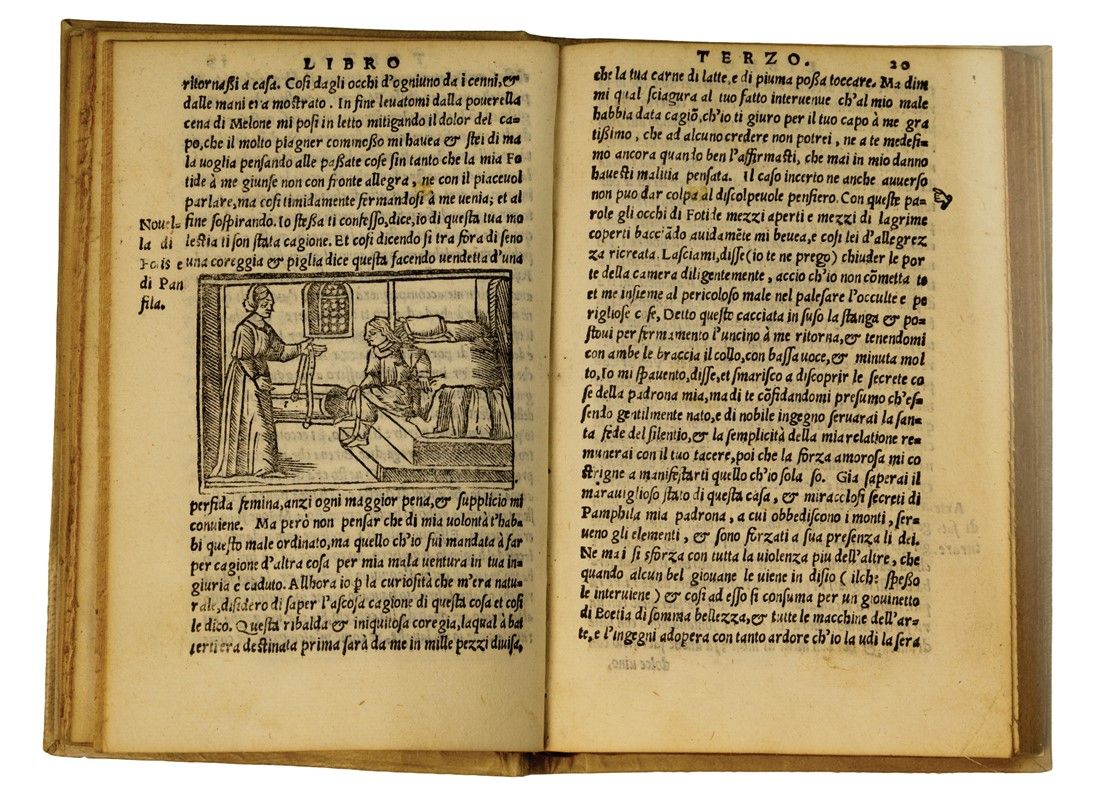 LIBRO
ritornaßi a casa. Cosi dagli occhi d'ogniuno da i cenni, &
dalle mani era mostrato. In fine leuatomi dalla pouerella
cena di Melone mi posi in letto mitigando il dolor del ca-
po, che il molto piagner commesso mi hauea & stei di ma
la uoglia pensando alle passate cose sin tanto che la mia Fo
tide à me giunse non con fronte allegra, ne con il piaceuol
parlare, ma cosi timidamente fermandosi à me uenia; et al
fine sospirando. Io steßa ti confesso, dice, io di questa tua mo
lestia ti son stata cagione. Et cosi dicendo si tra fora di seno
una coreggia & piglia dice questa facendo uendetta d'una
Nouel-
la di
Fotis e
di Pan
fila.
perfida femina, anzi ogni maggior pena, & supplicio mi
conuiene. Ma però non pensar che di mia uolontà t'hab-
bi questo male ordinato, ma quello ch'io fui mandata à far
per cagione d'altra cosa per mia mala uentura in tua in-
giuria è caduto. Allhora io p la curiosità che m'era natu-
rale, disidero di saper l'ascosa cagione di questa cosa et cosi
le dico. Questa ribalda & iniquitosa coregia, laqual à bat
terti era destinata prima sarà da me in mille pezzi diuisa,
TERZO. 20
che la tua carne di latte, e di piuma poßa toccare. Ma dim
mi qual sciagura al tuo fatto interuenue ch'al mio male
habbia data cagiõ, ch'io ti giuro per il tuo capo à me gra
tißimo, che ad alcuno credere non potrei, ne a te medesi-
mo ancora quando ben l'affirmasti, che mai in mio danno
hauesti malitia pensata. Il caso incerto ne anche auuerso
non puo dar colpa al discolpeuole pensiero. Con queste pa-
role gli occhi di Fotide mezzi aperti e mezzi di lagrime
coperti bacciãdo auidamẽte mi beuea, e cosi lei d'allegrez
za ricreata. Lasciami, disse (io te ne prego) chiuder le por
te della camera diligentemente, accio ch'io non cõmetta te
et me insieme al pericoloso male nel palesare l'occulte e pe
rigliose c se, Detto questo cacciata in suso la stanga & po-
stoui per fermamento l'uncino à me ritorna, & tenendomi
con ambe le braccia il collo, con bassa uoce, & minuta mol
to, Io mi spauento, disse, et smarisco a discoprir le secrete co
se della padrona mia, ma di te cõfidandomi presumo ch'es-
sendo gentilmente nato, e di nobile ingegno seruarai la san-
ta fede del silentio, & la semplicità della mia relatione re-
munerai con il tuo tacere, poi che la forza amorosa mi co
strigne a manifestarti quello ch'io sola so. Gia saperai il
marauiglioso stato di questa casa, & miracolosi secreti di
Pamphila mia padrona, a cui obbediscono i monti, ser-
ueno gli elementi, & sono sforzati a sua presenza li dei.
Ne mai si sforza con tutta la uiolenza piu dell'altre, che
quando alcun bel giouane le uiene in disio (ilche spesso
le interuiene) & cosi ad esso si consuma per un giouinetto
di Boetia di somma bellezza, & tutte le macchine dell'ar-
te, e l'ingegni adopera con tanto ardore ch'io la udi la sera